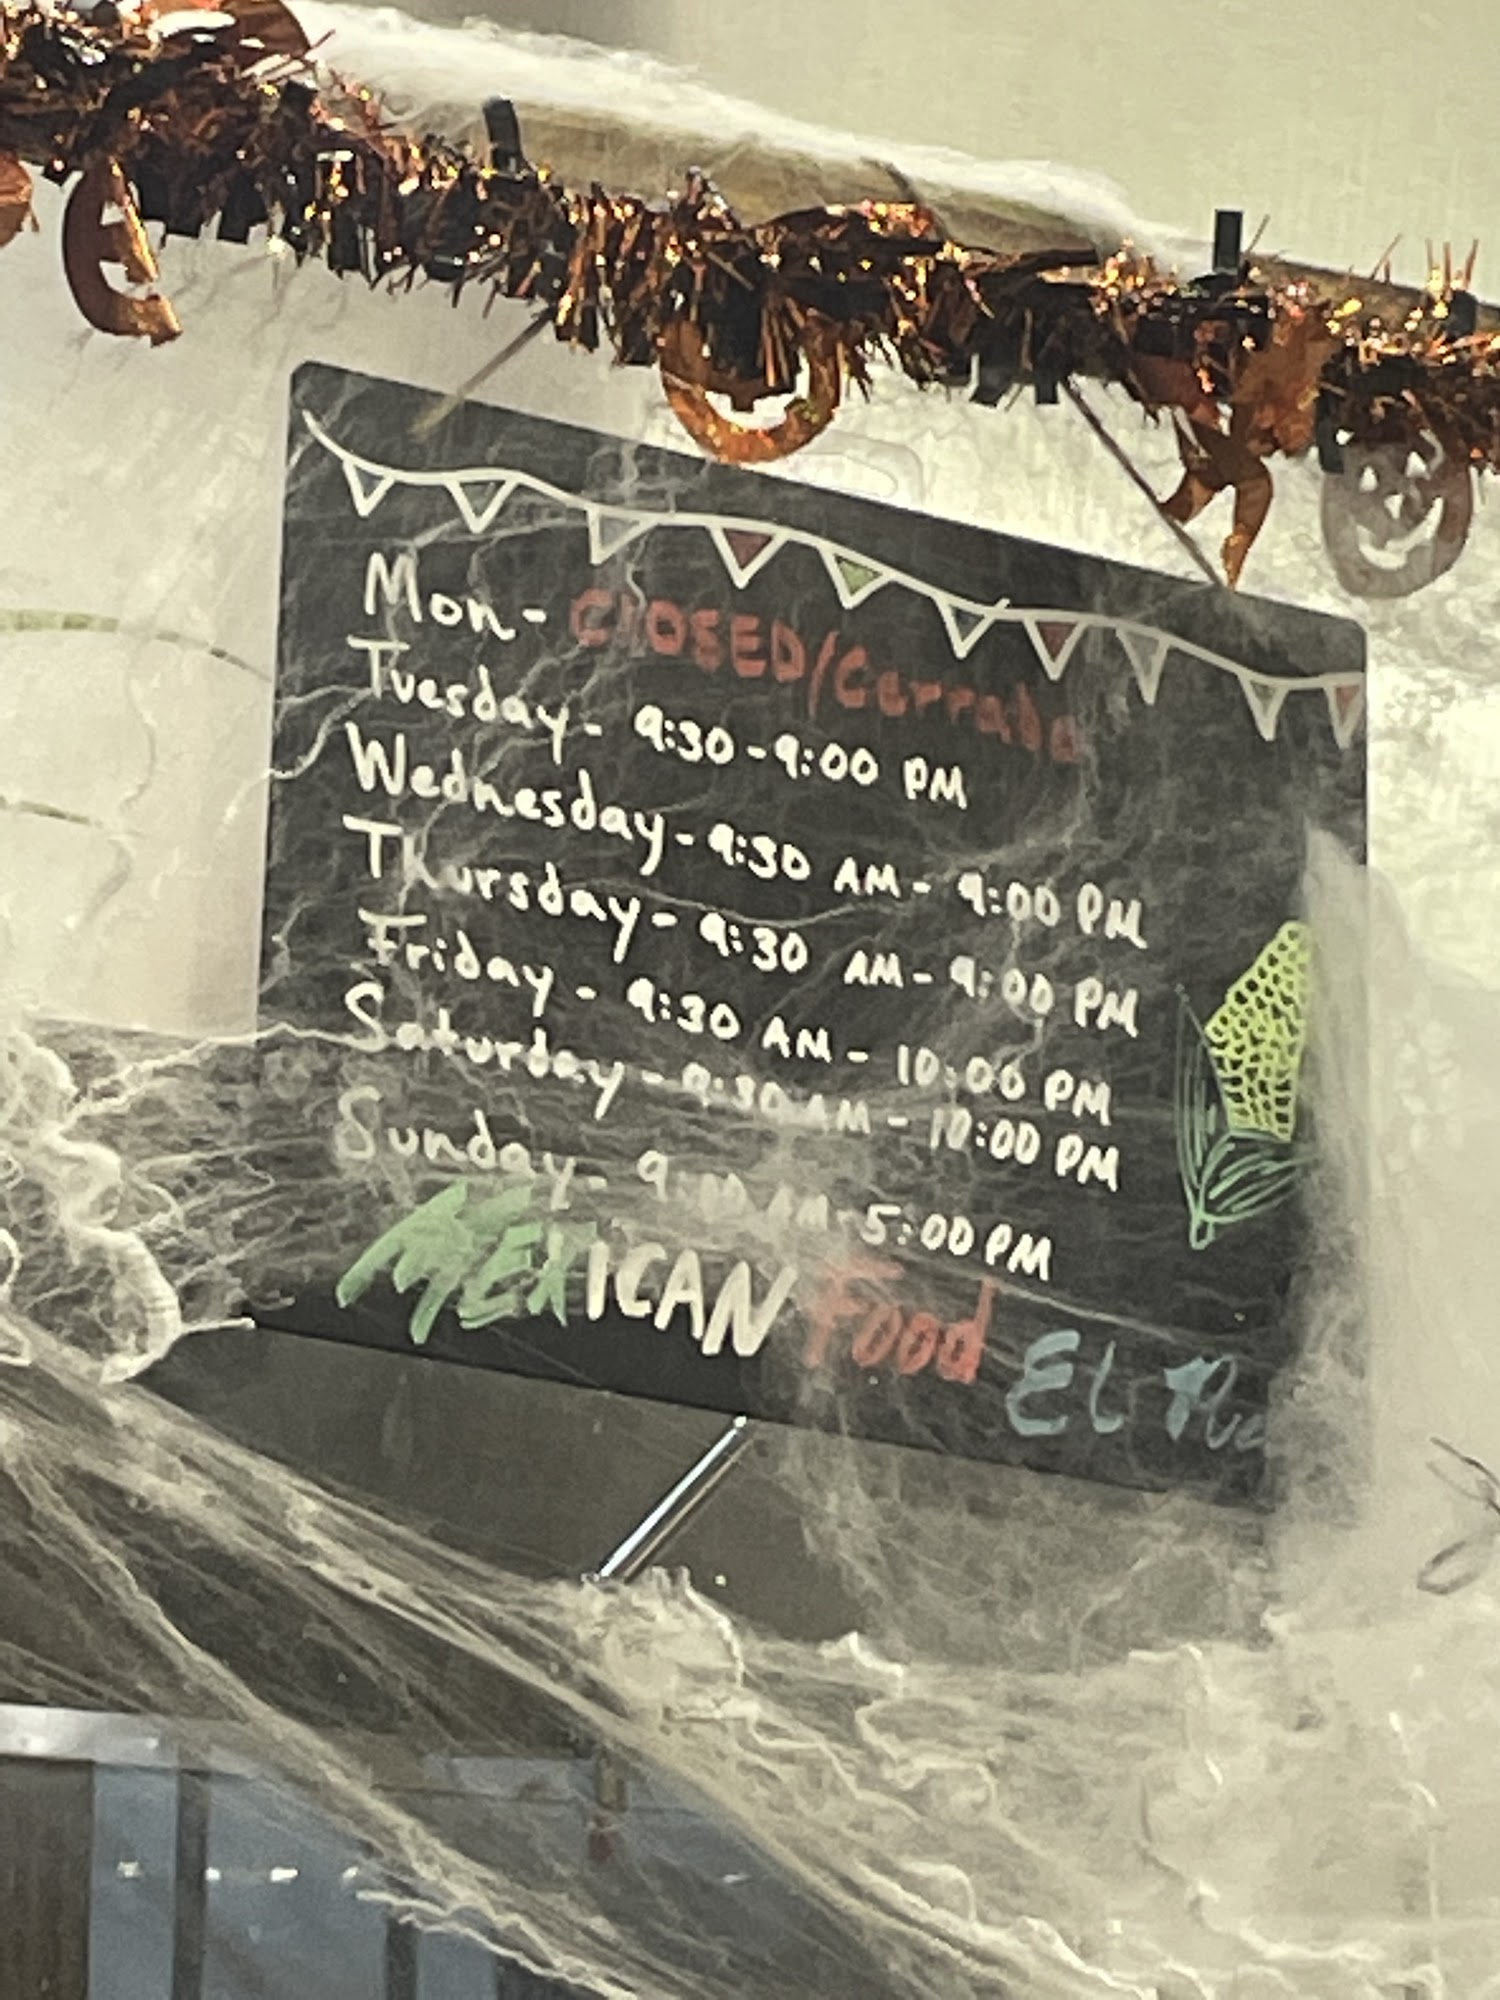 Mon- CLOSED/Cerrado
Tuesday- 9:30-9:00 PM
Wednesday- 9:30 AM- 9:00 PM
Thursday- 9:30 AM- 9:00 PM
Friday- 9:30 AM- 10:00 PM
Saturday- 9:30 AM- 10:00 PM
Sunday- AM- 5:00 PM
MEXICAN Food El